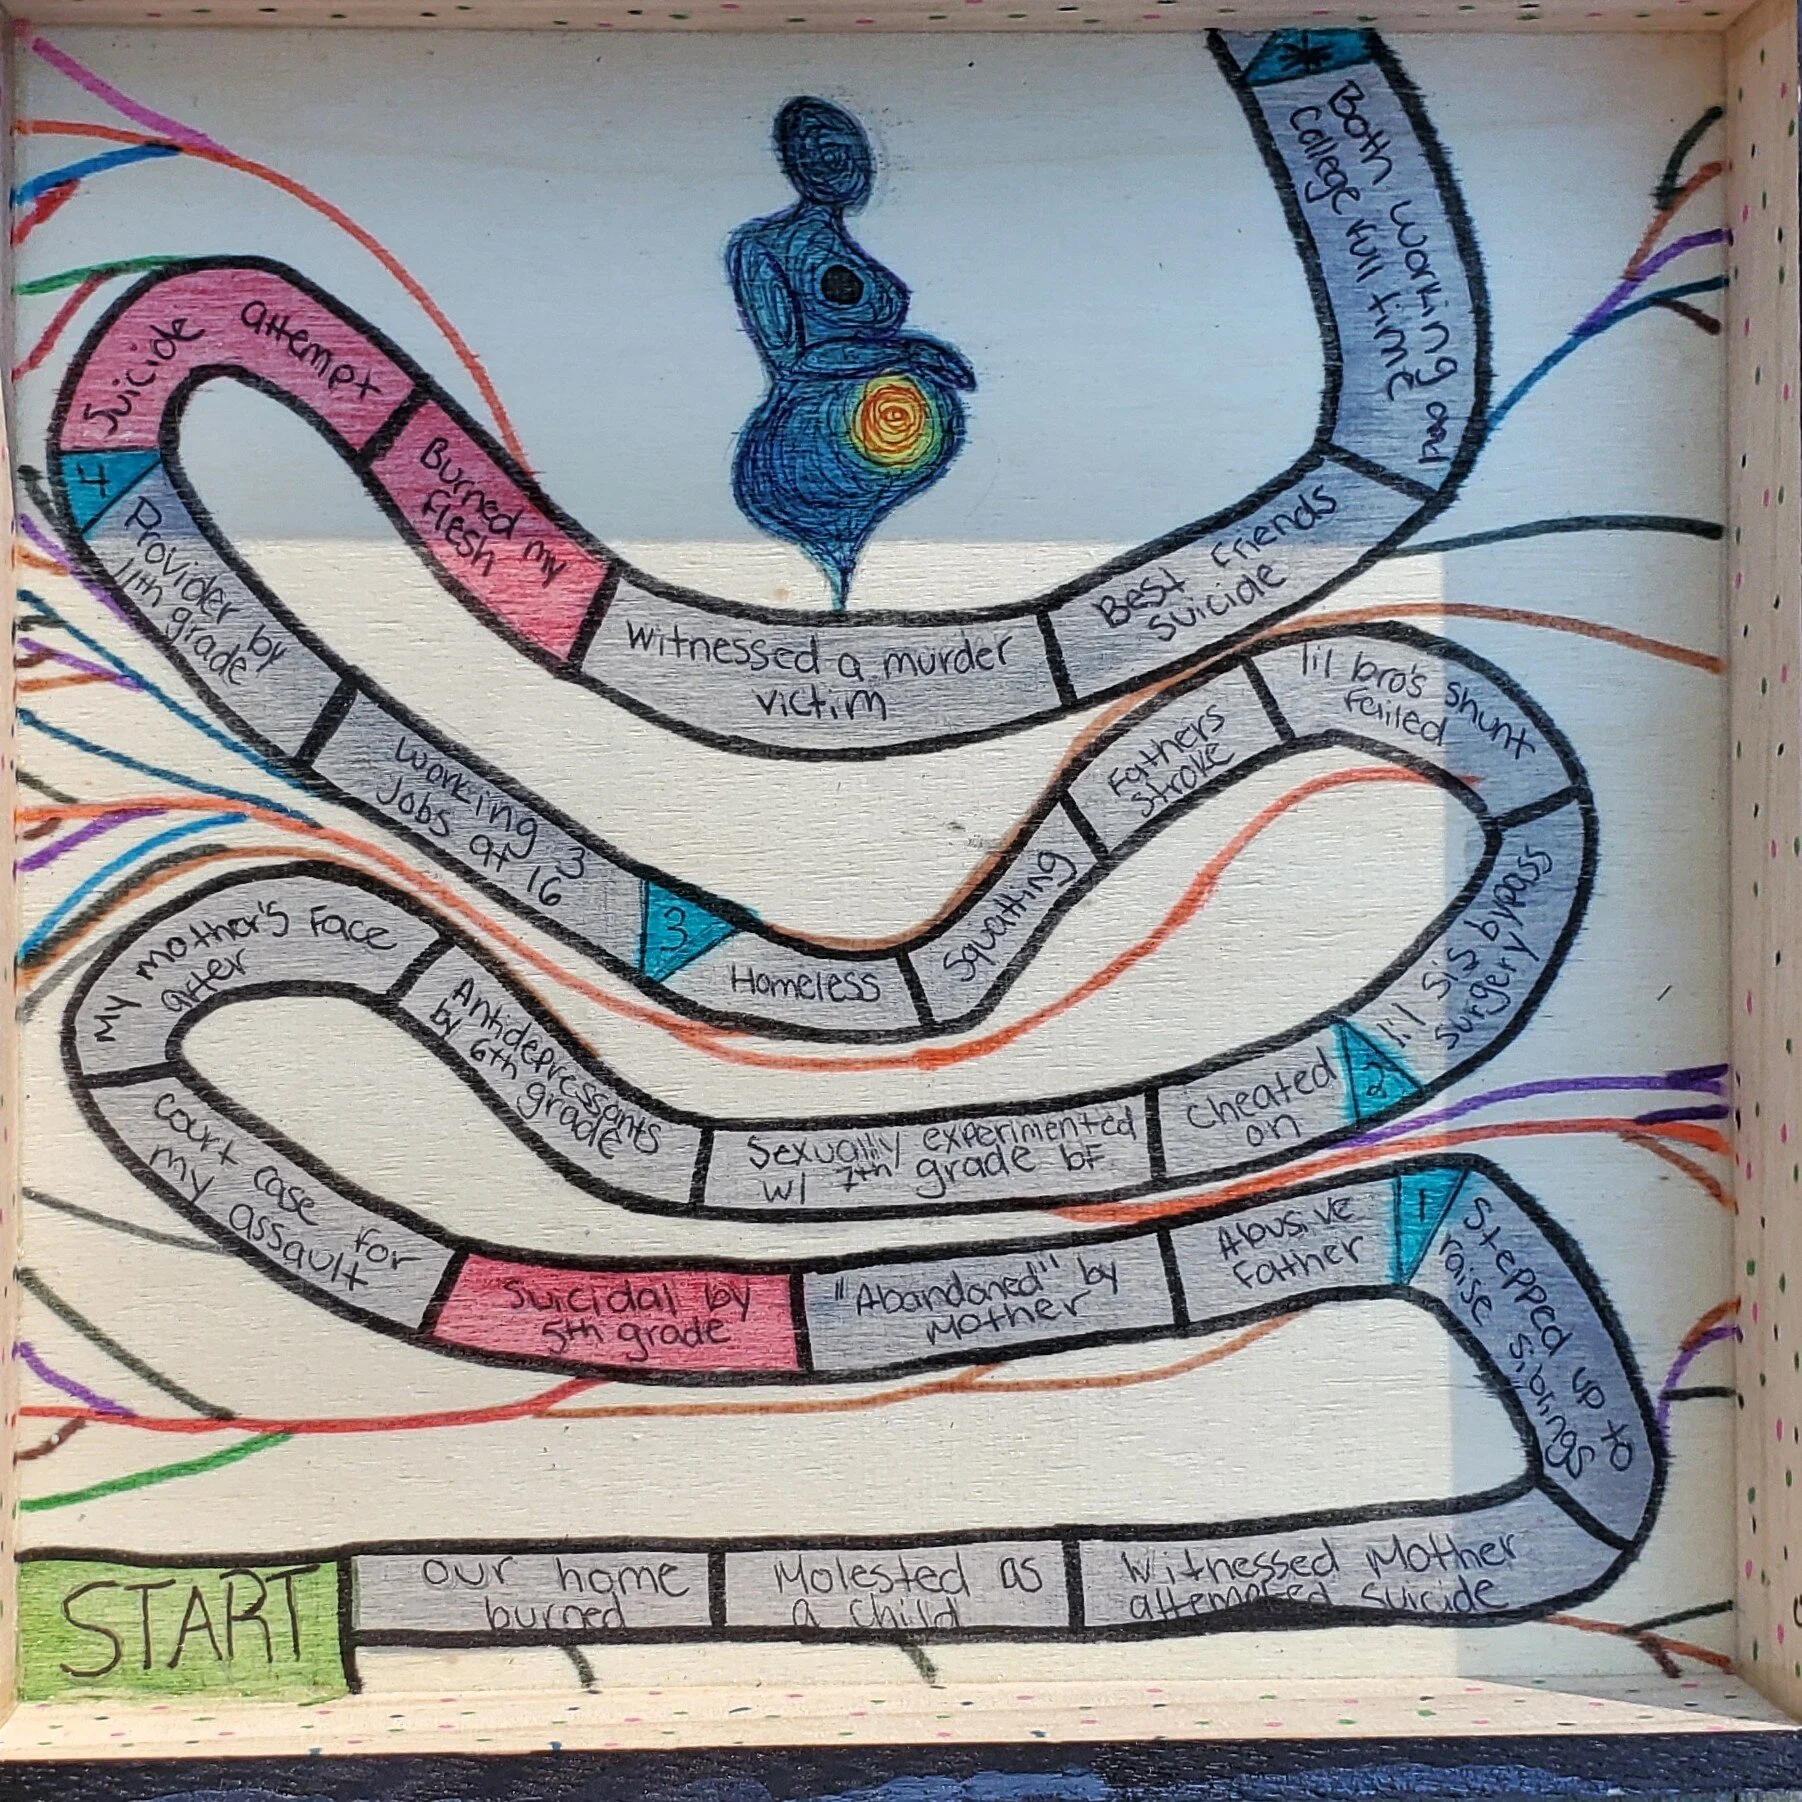 START
our home
burned
Molested as
a child
Witnessed Mother
attempted suicide
Stepped up to
raise siblings
1
Abusive
Father
"Abandoned" by
Mother
Suicidal by
5th grade
Court case for
my assault
My Mother's Face
after
Antidepressants
by 6th grade
Sexually experimented
w/ 7th grade bf
Cheated
on
2
lil sis bypass
surgery
lil bro's shunt
failed
Fathers
stroke
Squatting
Homeless
3
Working 3
Jobs at 16
Provider by
11th grade
4
Suicide attempt
Burned my
flesh
Witnessed a murder
victim
Best Friends
suicide
Both working and
College full time